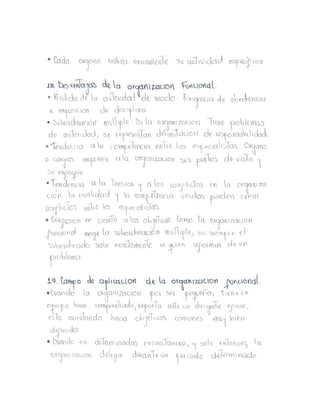 • Cada organo realiza unicamente su actividad especifica
18. Desventajas de la organizacion Funcional.
• Perdida de la autoridad de mando: Exigencia de obediencia
e imposicion de disciplina
• Subordinacion multiple: Si la organizacion Tiene problemas
de autoridad, se representan delimitacion de responsabilidad
• Tendencia a la competencia entre los especialistas. Organos
o cargos imponen a la organizacion sus puntos de vista y
su enfoque
• Tendencia a la Tension y a los conflictos en la organiza
ción. la rivalidad y la competencia unidas pueden crear
conflictos entre los especialistas.
• Confusion en cuanto a los objetivos. Como la organizacion
funcional exige la subordinación multiple, no siempre el
subordinado sabe exactamente a quien informar de un
problema
19. Campo de aplicacion de la organizacion funcional.
• Cuando la organizacion por ser pequeña, tiene un
equipo bien compenetrado, reporta ante un dirigente eficaz,
esta orientando hacia objetivos comunes muy bien
definidos
• Cuando en determinadas circunstancias, y solo entonces, la
organizacion delega durante un periodo determinado